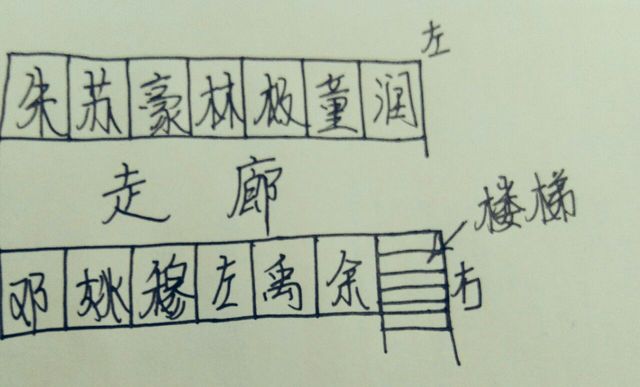 左
朱 苏 豪 林 极 董 润
走 廊
楼梯
邓 姚 穆 左 禹 余
右